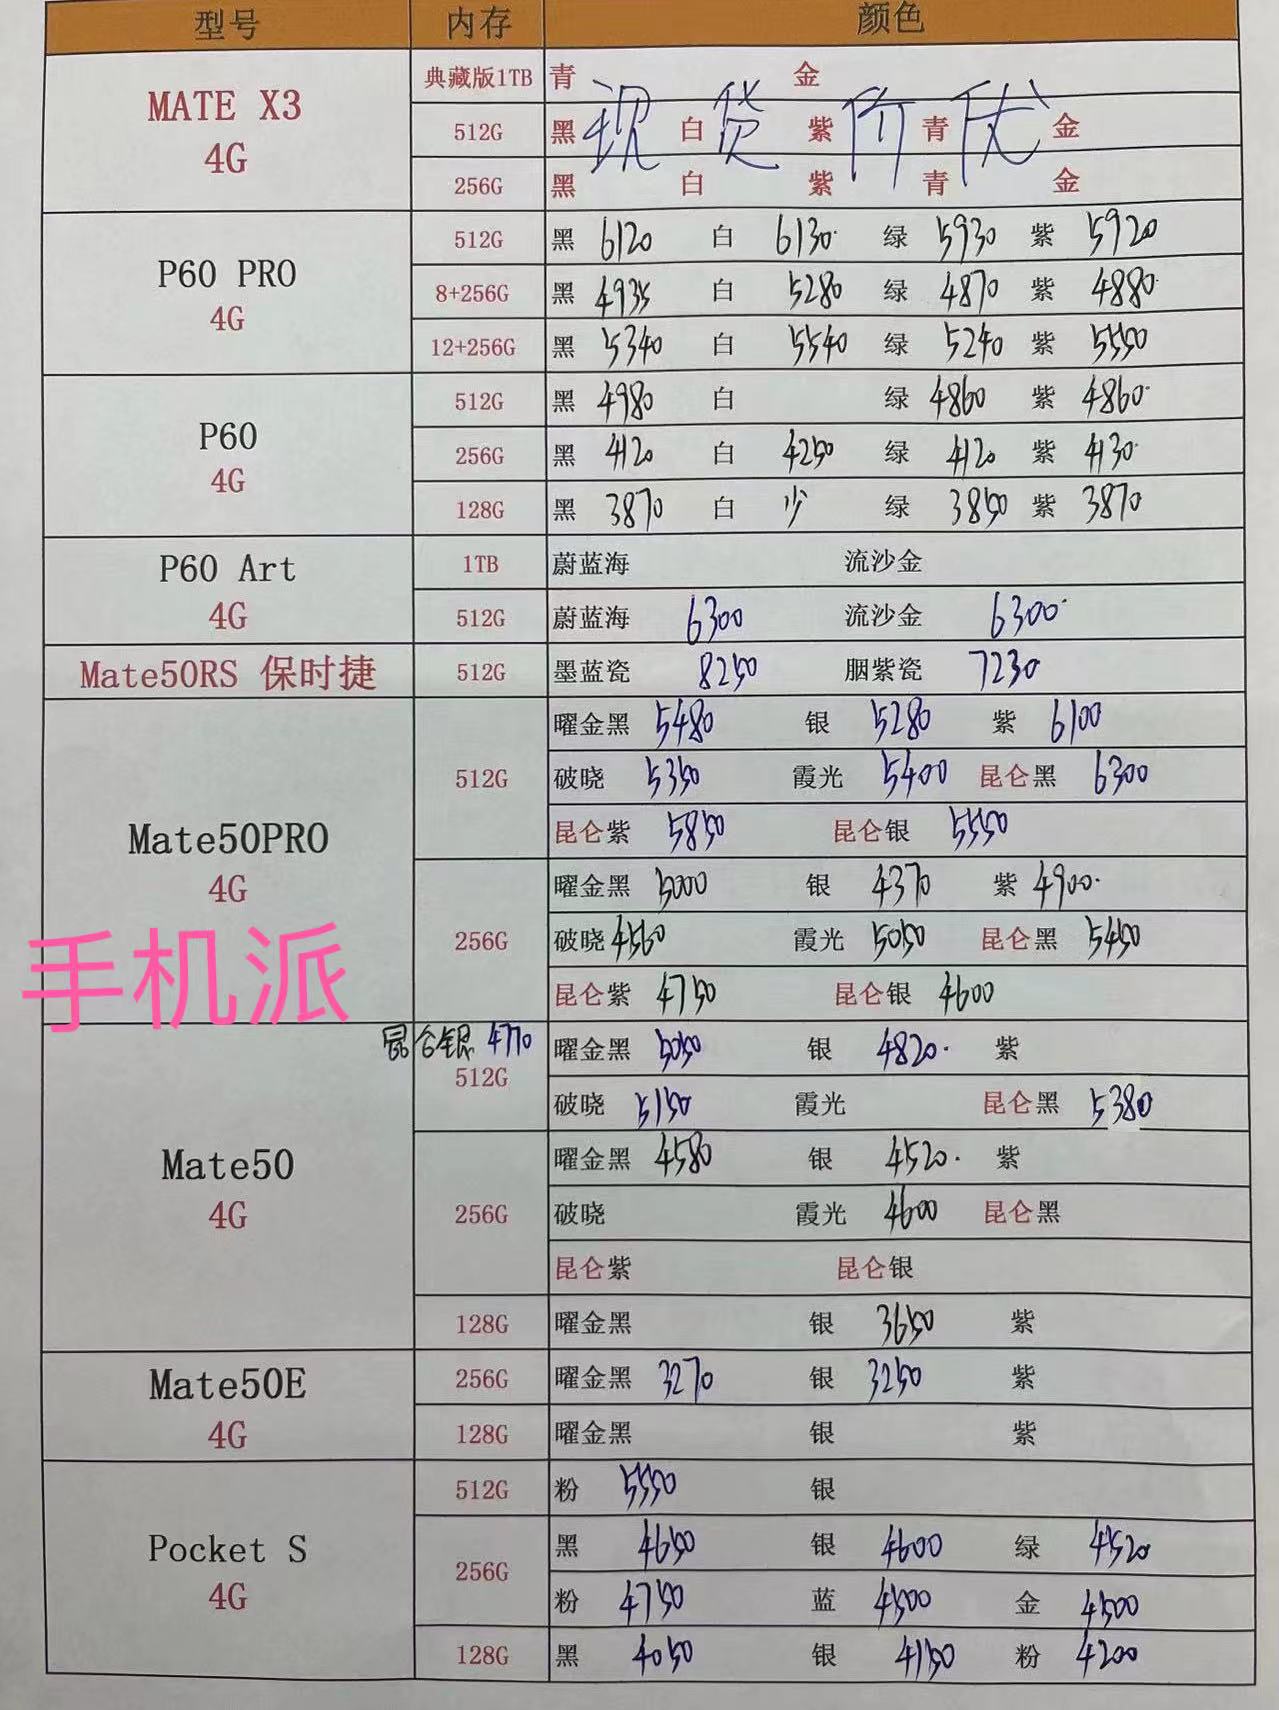 型号 内存 颜色
典藏版1TB 青 金
MATE X3
4G
现货价优
512G 黑 白 紫 青 金
256G 黑 白 紫 青 金
512G 黑 6120 白 6130 绿 5930 紫 5920
P60 PRO
4G
8+256G 黑 4935 白 5280 绿 4870 紫 4880
12+256G 黑 5340 白 5540 绿 5240 紫 5550
512G 黑 4980 白 绿 4860 紫 4860
P60
4G
256G 黑 4120 白 4250 绿 4120 紫 4130
128G 黑 3870 白 少 绿 3850 紫 3870
P60 Art
4G
1TB 蔚蓝海 流沙金
512G 蔚蓝海 6300 流沙金 6300
Mate50RS 保时捷 512G 墨蓝瓷 8250 胭紫瓷 7230
曜金黑 5480 银 5280 紫 6100
512G 破晓 5350 霞光 5400 昆仑黑 6300
昆仑紫 5850 昆仑银 5550
Mate50PRO
4G
曜金黑 5000 银 4370 紫 4900
256G 破晓 4560 霞光 5050 昆仑黑 5450
昆仑紫 4750 昆仑银 4600
手机派
昆仑银 4770
512G 曜金黑 5050 银 4820 紫
破晓 5150 霞光 昆仑黑 5380
Mate50
4G
曜金黑 4580 银 4520 紫
256G 破晓 霞光 4600 昆仑黑
昆仑紫 昆仑银
128G 曜金黑 银 3650 紫
Mate50E
4G
256G 曜金黑 3270 银 3250 紫
128G 曜金黑 银 紫
512G 粉 5550 银
Pocket S
4G
256G 黑 4650 银 4600 绿 4520
粉 4750 蓝 4500 金 4500
128G 黑 4050 银 4150 粉 4200